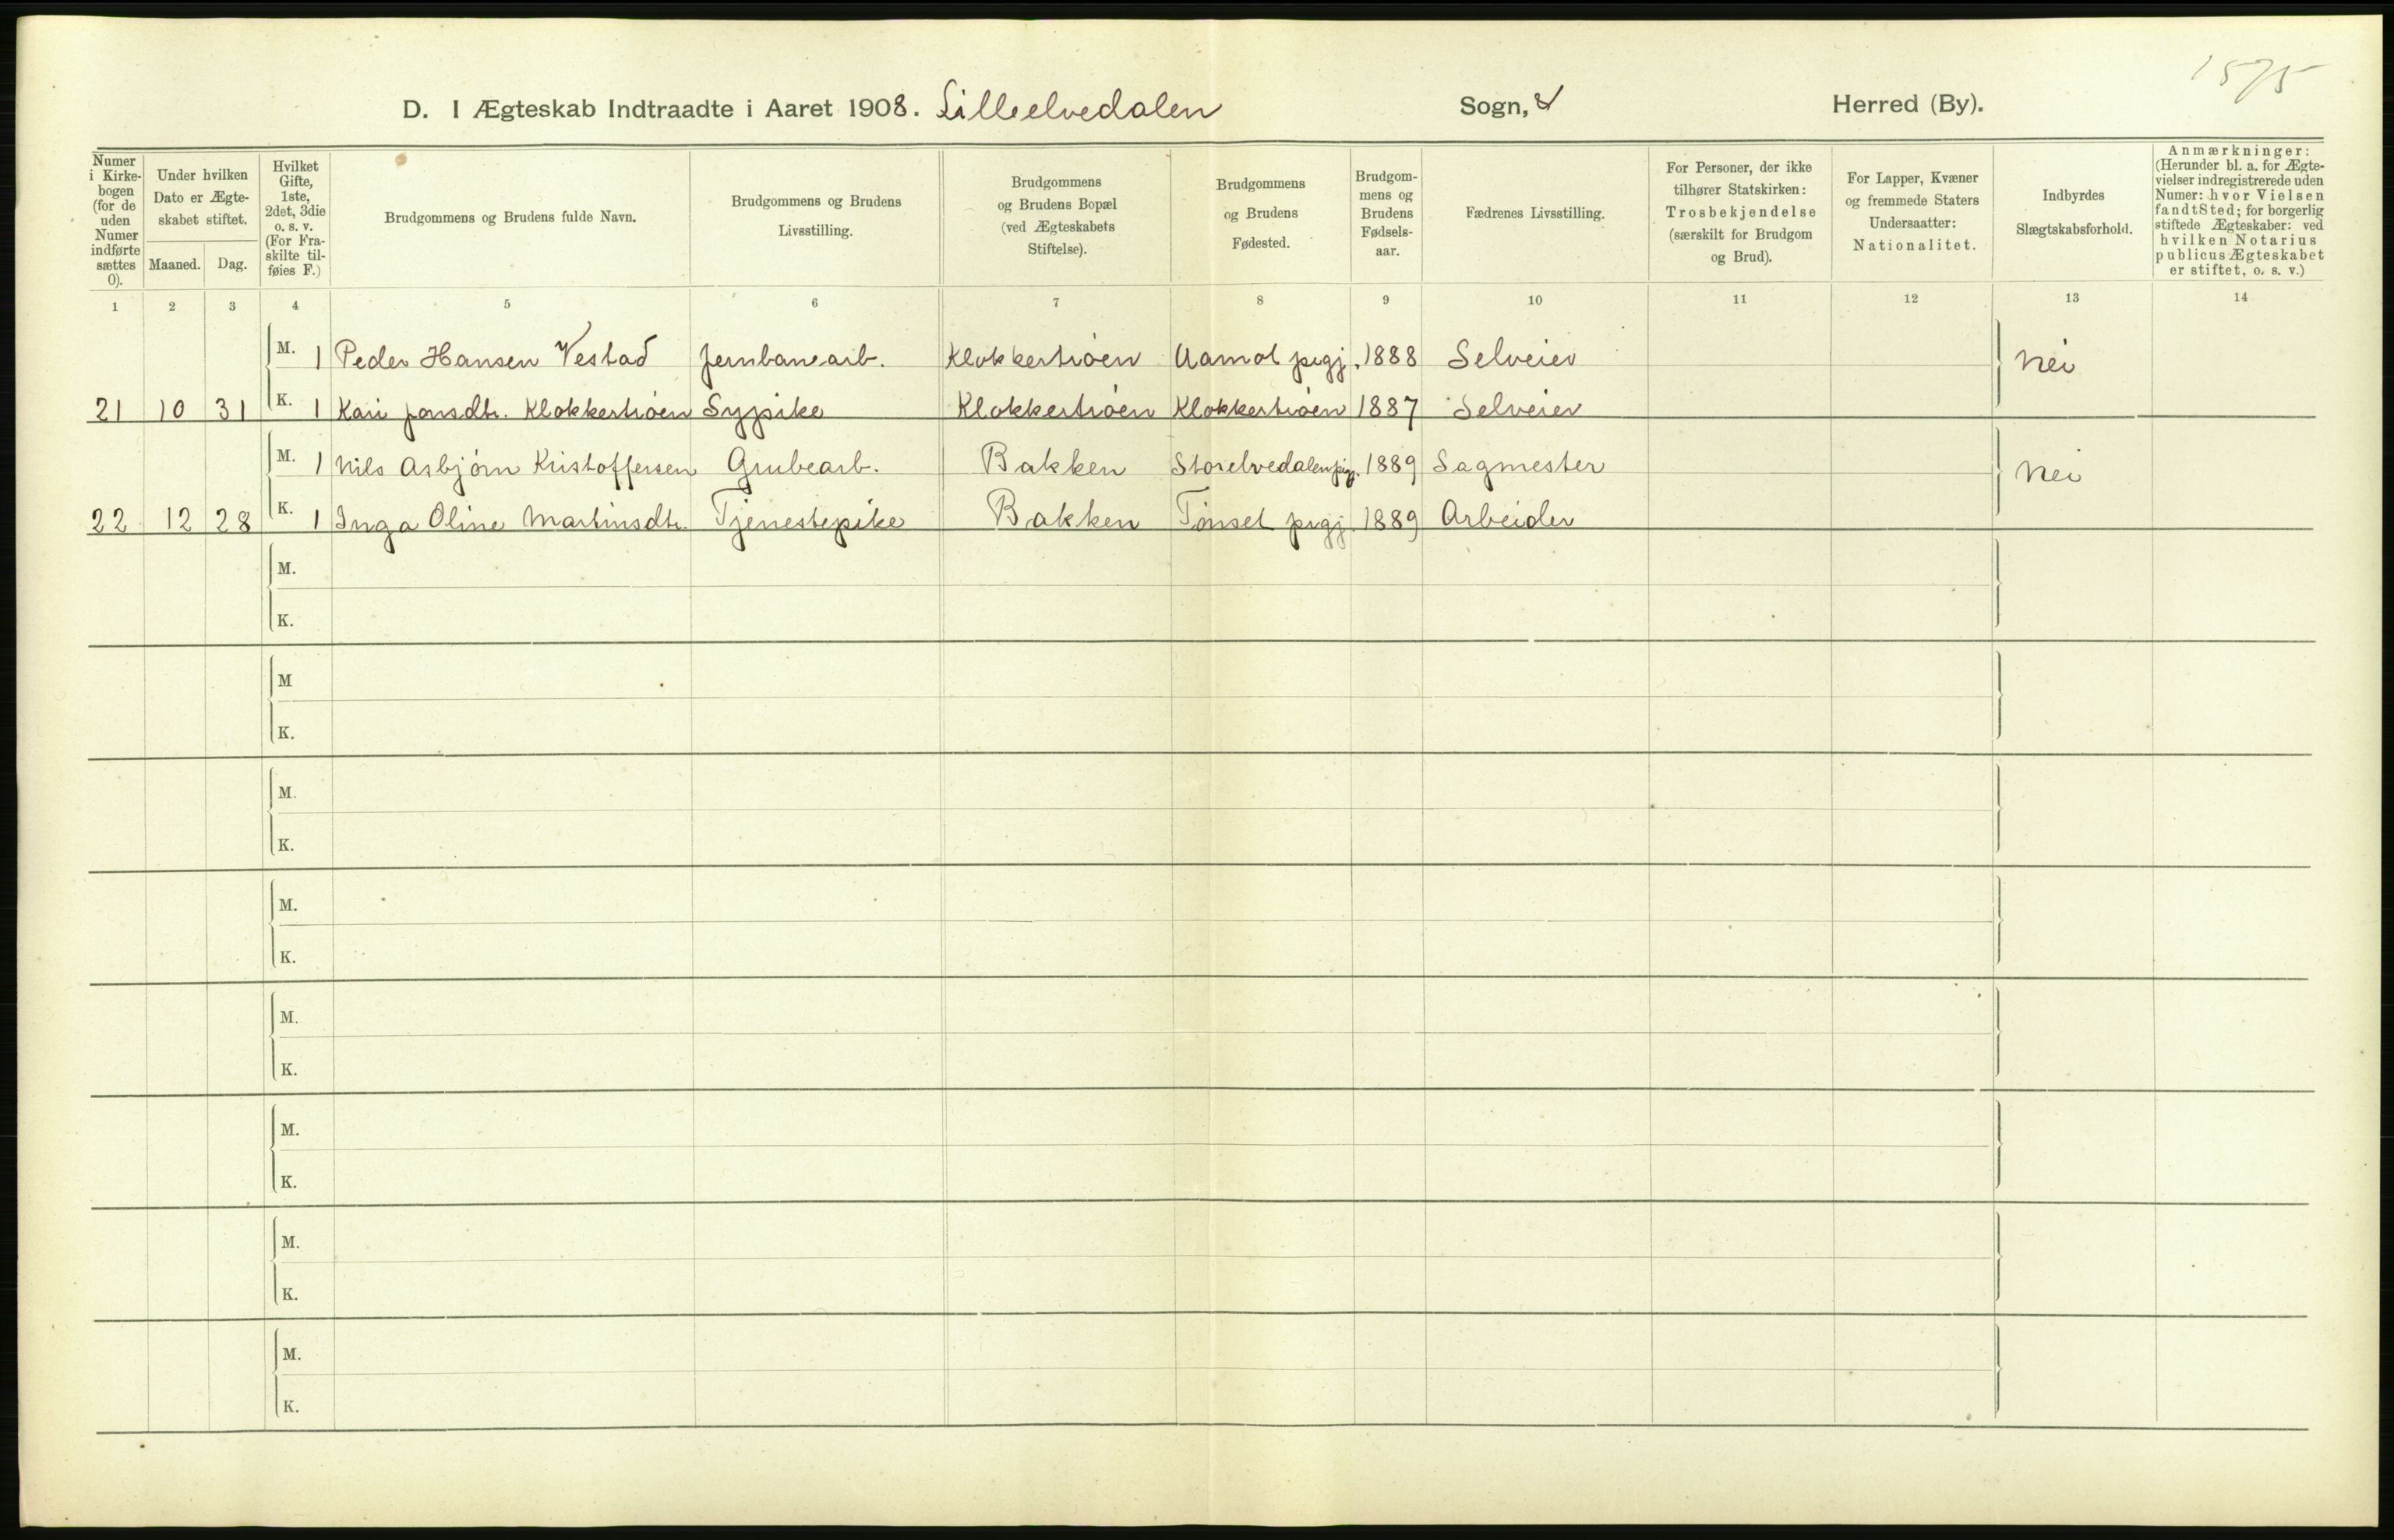 1575
D. I Ægteskab Indtraadte i Aaret 1908. Lilleelvedalen Sogn, & Herred (By).
Numer i Kirkebogen (for de uden Numer indførte sættes 0).
Under hvilken Dato er Ægteskabet stiftet.
Maaned. Dag.
Hvilket Gifte, 1ste, 2det, 3die o. s. v. (For Fraskilte tilføies F.)
Brudgommens og Brudens fulde Navn.
Brudgommens og Brudens Livsstilling.
Brudgommens og Brudens Bopæl (ved Ægteskabets Stiftelse).
Brudgommens og Brudens Fødested.
Brudgommens og Brudens Fødselsaar.
Fædrenes Livsstilling.
For Personer, der ikke tilhører Statskirken: Trosbekjendelse (særskilt for Brudgom og Brud).
For Lapper, Kvæner og fremmede Staters Undersaatter: Nationalitet.
Indbyrdes Slægtskabsforhold.
Anmærkninger: (Herunder bl. a. for Ægtevielser indregistrerede uden Numer: hvor Vielsen fandt Sted; for borgerlig stiftede Ægteskaber: ved hvilken Notarius publicus Ægteskabet er stiftet, o. s. v.)
1 2 3 4 5 6 7 8 9 10 11 12 13 14
M. 1 Peder Hansen Vestad Jernbanearb. Klokkertrøen Aamot prgj. 1888 Selveier Nei
21 10 31 K. 1 Kari Jonsdtr. Klokkertrøen Sypike Klokkertrøen Klokkertrøen 1887 Selveier
M. 1 Nils Asbjørn Kristoffersen Grubearb. Bakken Storelvedalen prgj. 1889 Sagmester Nei
22 12 28 K. 1 Inga Oline Martinsdtr. Tjenestepike Bakken Tønset prgj. 1889 Arbeider
M.
K.
M
K.
M.
K.
M.
K.
M.
K.
M.
K.
M.
K.
M.
K.